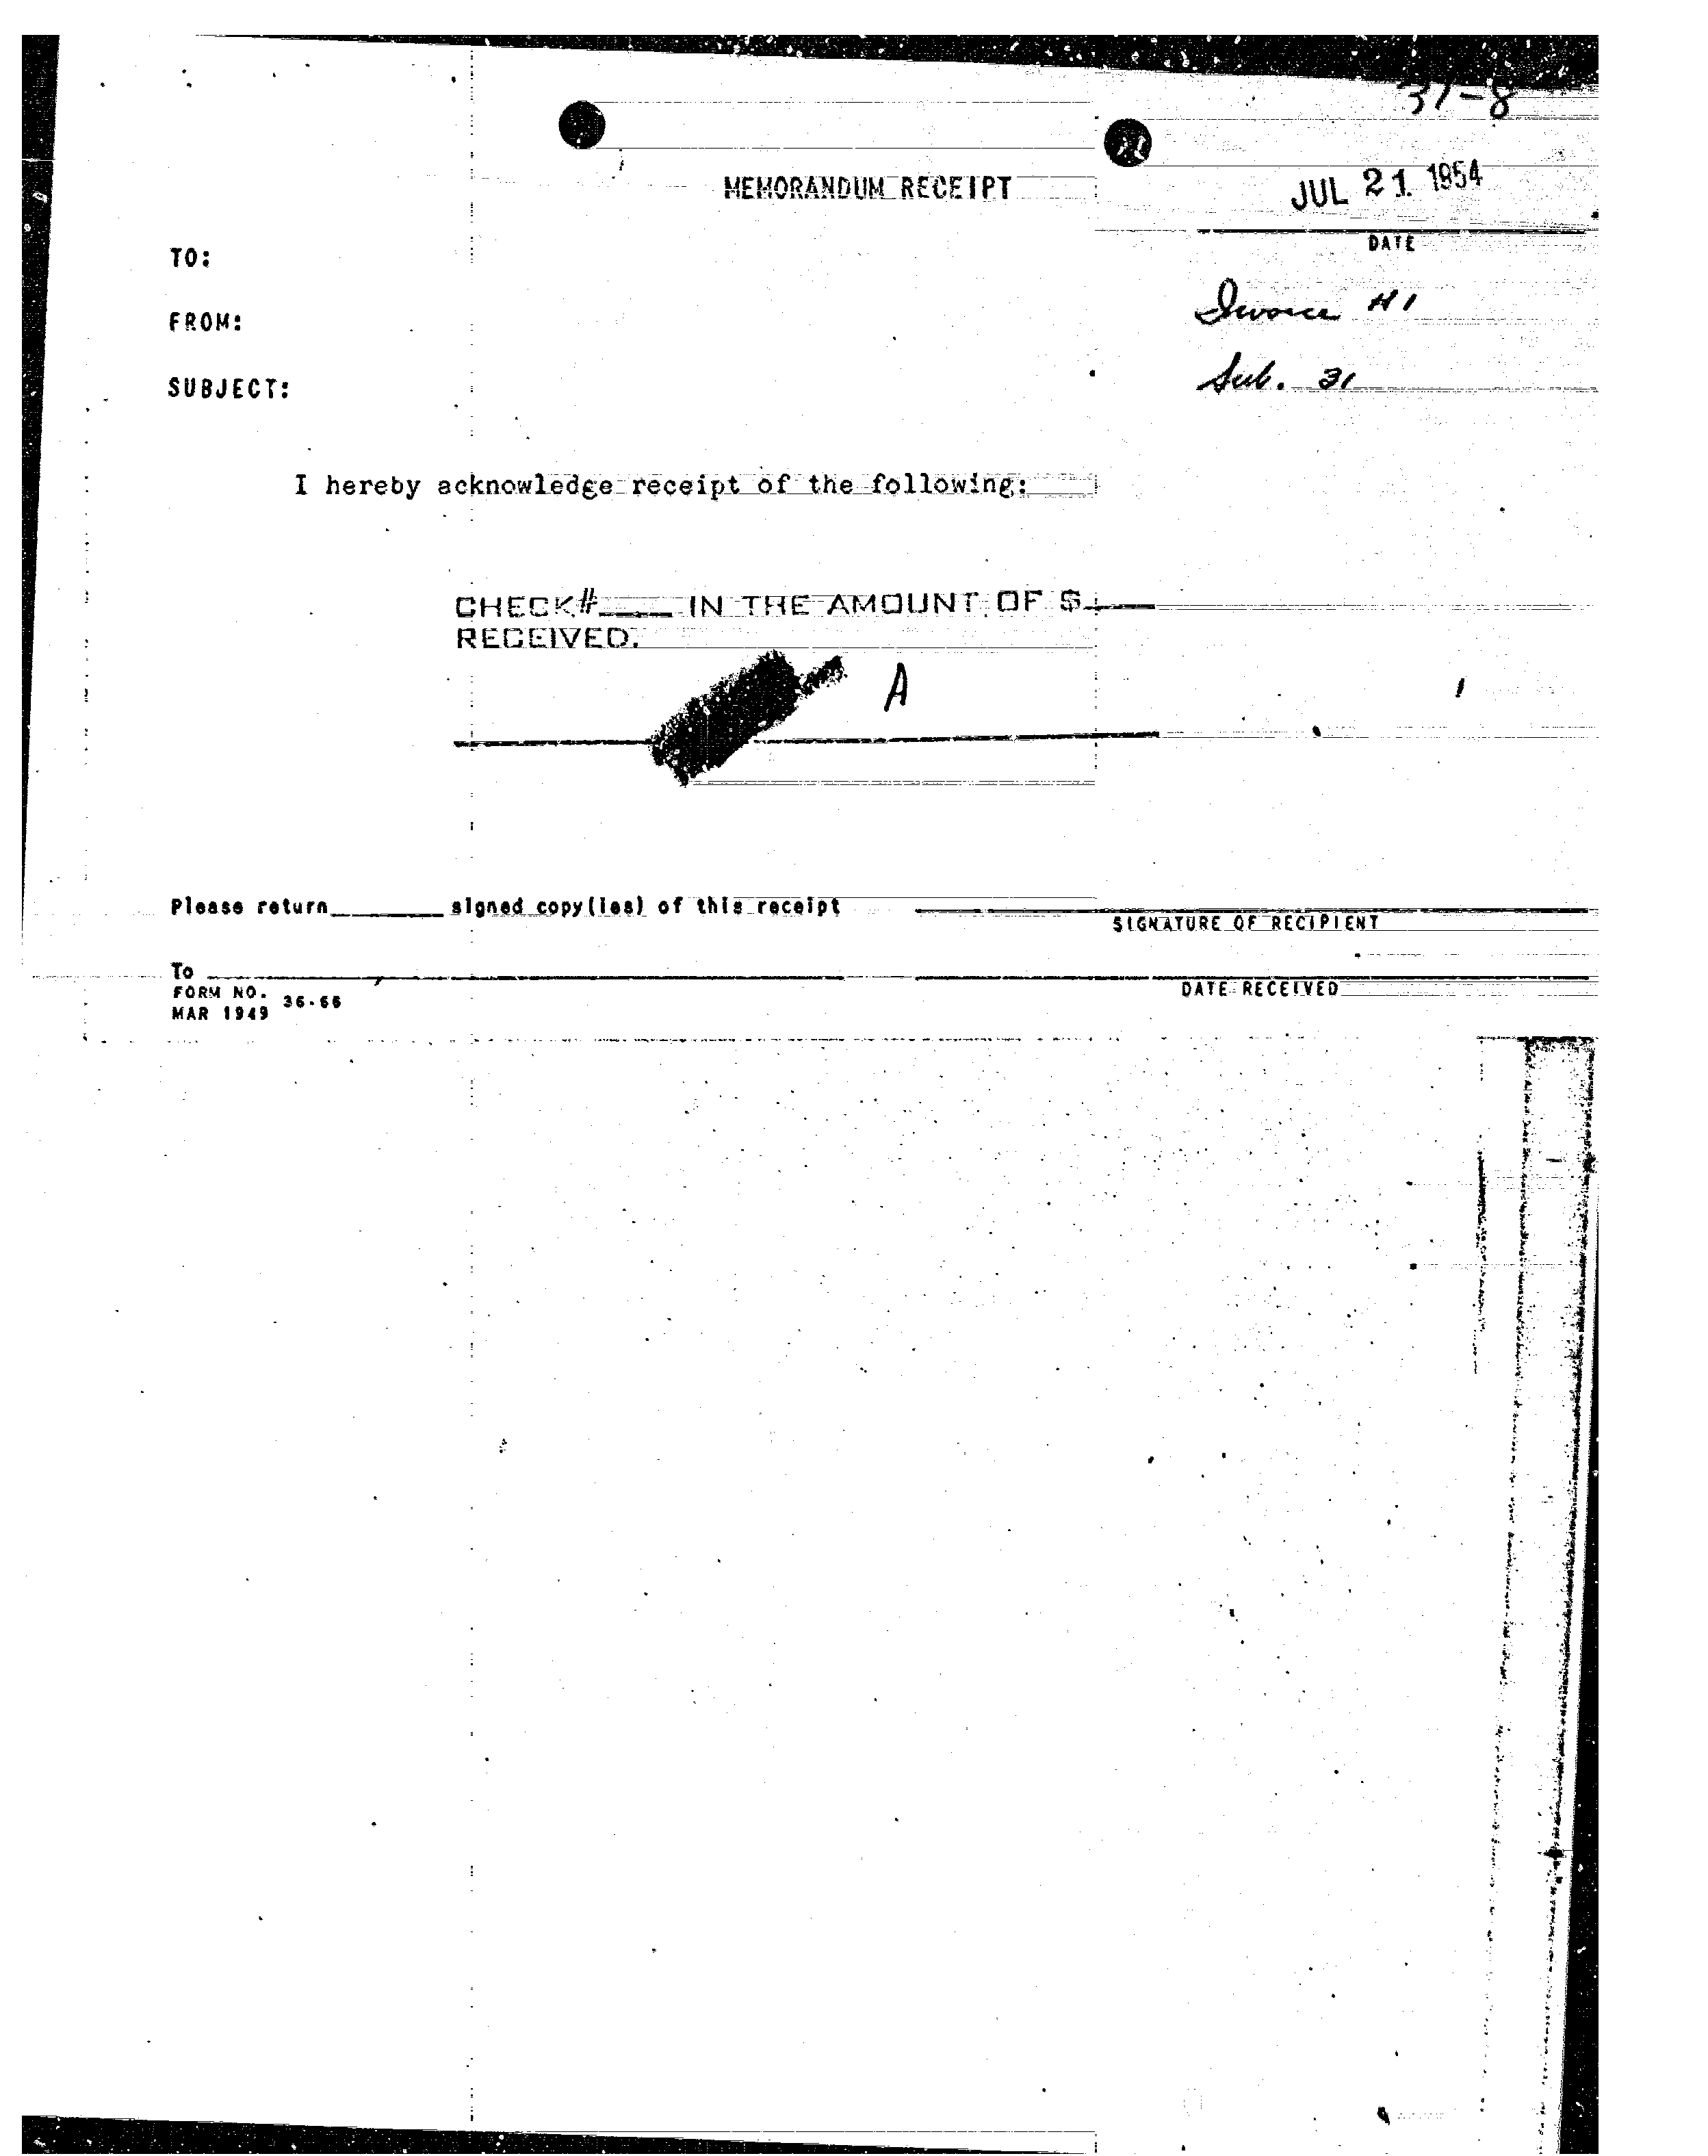 31-8
MEMORANDUM RECEIPT
JUL 21 1954
DATE
TO:
Invoice #1
FROM:
Sub. 31
SUBJECT:
I hereby acknowledge receipt of the following:
CHECK#____ IN THE AMOUNT OF $____
RECEIVED.
A
Please return________ signed copy(ies) of this receipt
SIGNATURE OF RECIPIENT
To
DATE RECEIVED
FORM NO. 36-66
MAR 1949